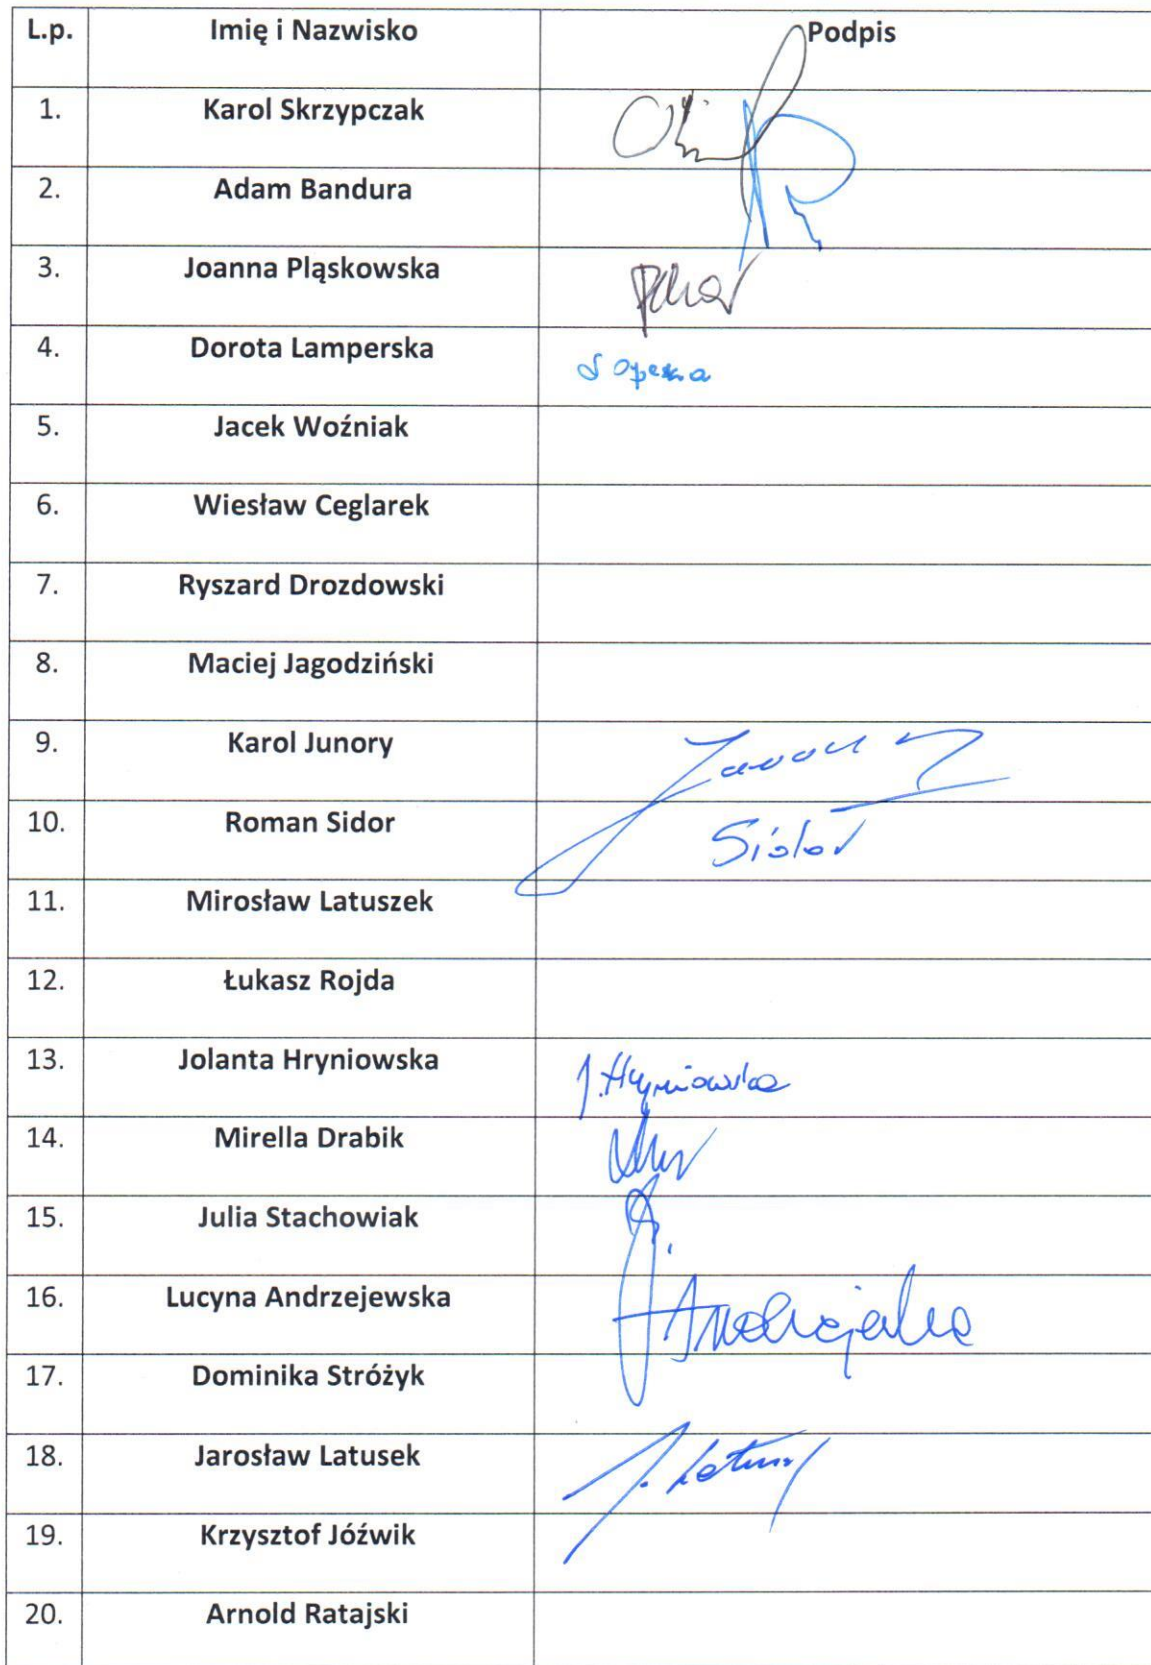 L.p. Imię i Nazwisko Podpis
1. Karol Skrzypczak
2. Adam Bandura
3. Joanna Pląskowska
4. Dorota Lamperska
5. Jacek Woźniak
6. Wiesław Ceglarek
7. Ryszard Drozdowski
8. Maciej Jagodziński
9. Karol Junory
10. Roman Sidor Sidor
11. Mirosław Latuszek
12. Łukasz Rojda
13. Jolanta Hryniowska J. Hryniowska
14. Mirella Drabik
15. Julia Stachowiak
16. Lucyna Andrzejewska
17. Dominika Stróżyk
18. Jarosław Latusek
19. Krzysztof Jóźwik
20. Arnold Ratajski